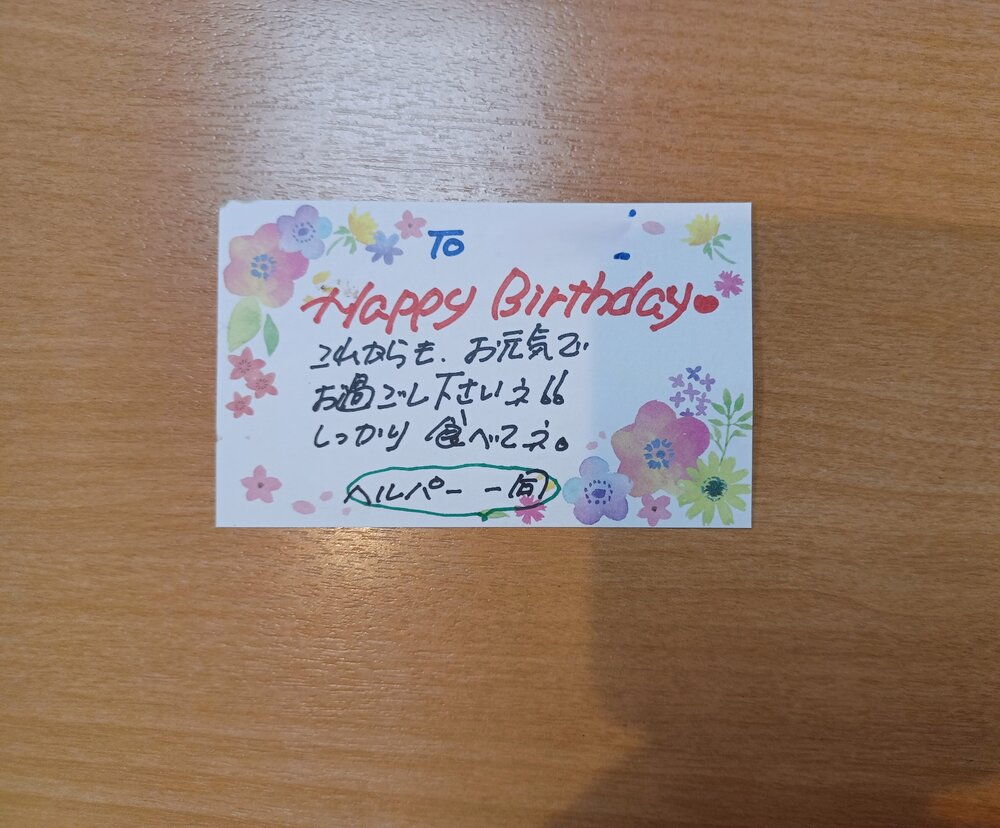 To
Happy Birthday
これからも、お元気で
お過ごし下さいネ!!
しっかり食べてネ。
ヘルパー一同